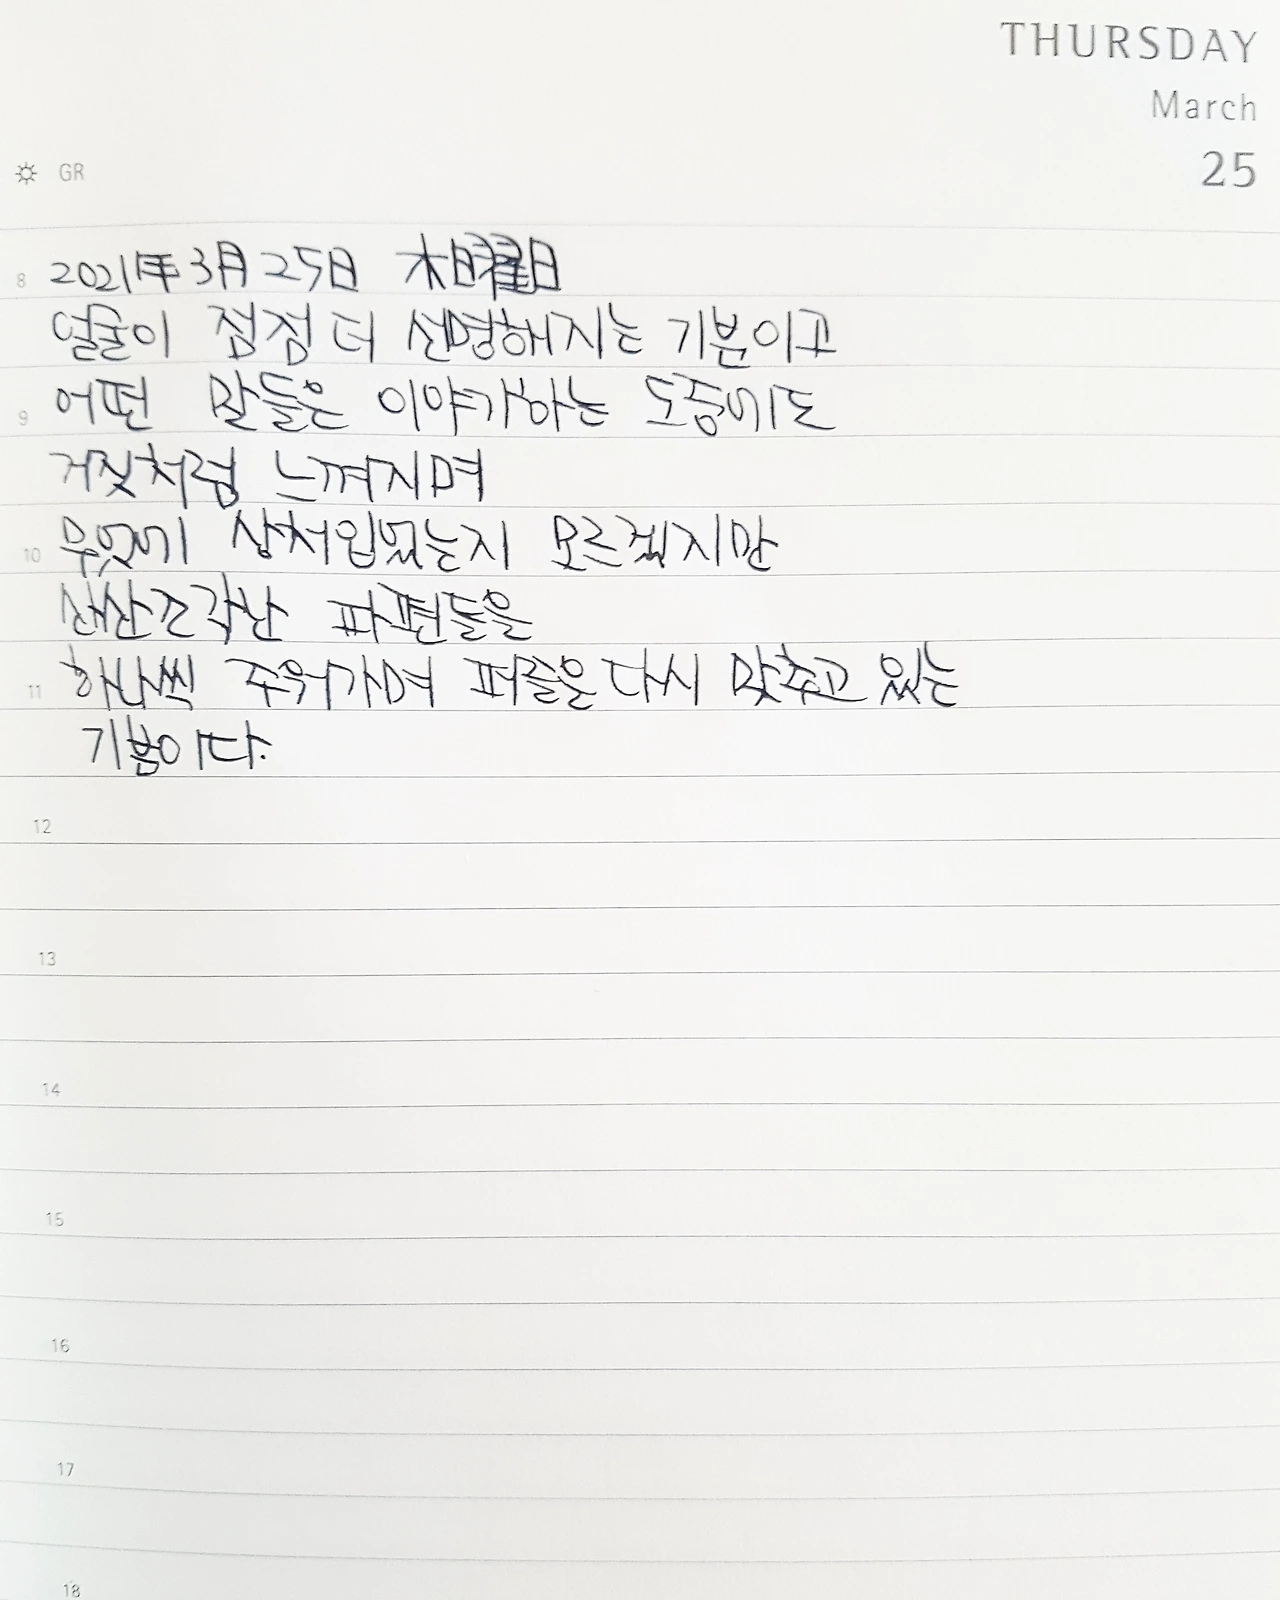 THURSDAY
March
25
GR
8 2021年3月25日 木曜日
얼굴이 점점 더 선명해지는 기분이고
9 어떤 말들은 이야기하는 도중에도
거짓처럼 느껴지며
10 무엇에 상처입었는지 모르겠지만
산산조각난 파편들을
11 하나씩 주워가며 퍼즐을 다시 맞추고 있는
기분이다.
12
13
14
15
16
17
18